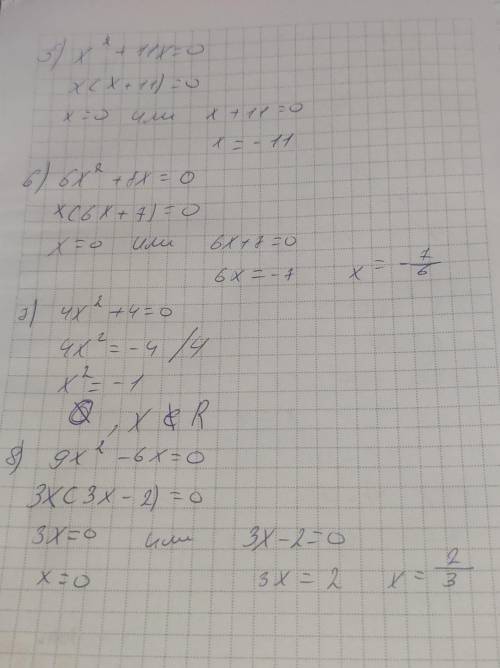 5) x² + 11x = 0
x(x + 11) = 0
x = 0 или x + 11 = 0
x = - 11
6) 6x² + 7x = 0
x(6x + 7) = 0
x = 0 или 6x + 7 = 0
6x = -7 x = -7/6
7) 4x² + 4 = 0
4x² = -4 /4
x² = -1
∅, x ∉ R
8) 9x² - 6x = 0
3x(3x - 2) = 0
3x = 0 или 3x - 2 = 0
x = 0 3x = 2 x = 2/3